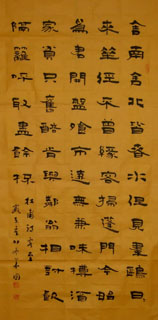 舍南舍北皆春水但見羣鷗日日
來花徑不曾緣客掃蓬門今始
為君開盤飧市遠無兼味樽酒
家貧只舊醅肯與鄰翁相對飲
隔籬呼取盡餘杯
杜甫詩客至